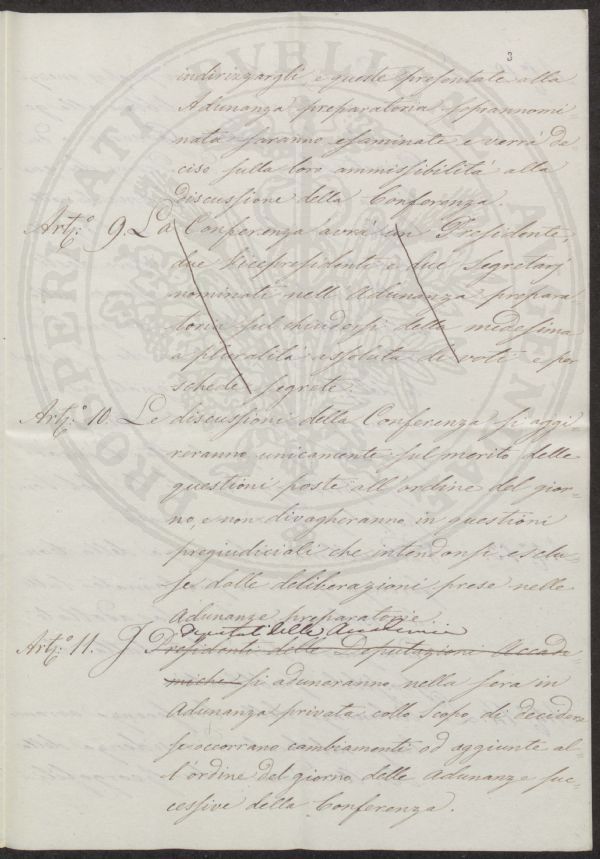 3
indirizzargli, e queste presentate alla
Adunanza preparatoria soprannomi-
nata saranno esaminate e verrà de
ciso sulla loro ammissibilità alla
discussione della Conferenza.
Art.° 9. La Conferenza avrà un Presidente,
due Vicepresidenti e due Segretarj
nominati nell'Adunanza prepara-
toria sul chiudersi della medesima
a pluralità assoluta di voti e per
schede segrete.
Art.° 10. Le discussioni della Conferenza si aggi-
reranno unicamente sul merito delle
questioni poste all'ordine del gior-
no, e non divagheranno in questioni
pregiudiciali che intendonsi esclu-
se dalle deliberazioni prese nelle
Adunanze preparatorie.
Deputati delle Accademie
Art.° 11. I Presidenti delle Deputazioni Accade-
miche si aduneranno nella sera in
Adunanza privata collo scopo di decidere
se occorrano cambiamenti od aggiunte al-
l'ordine del giorno delle Adunanze suc-
cessive della Conferenza.
PRO PERITATI PVBLICAE AVGENDAE